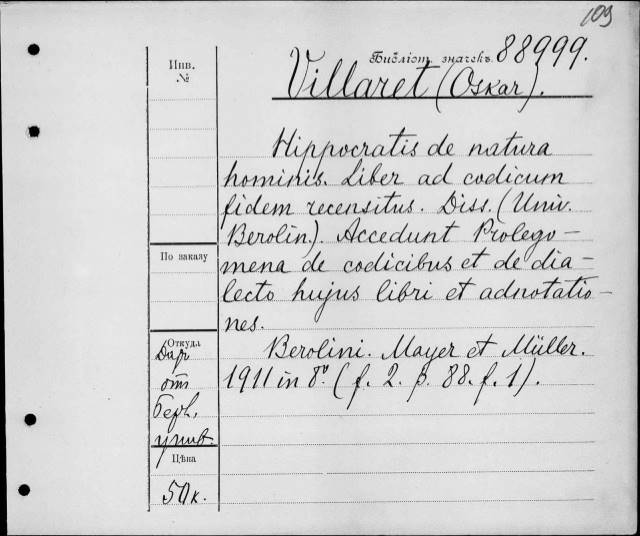 109
Библіот. значекъ 88999.
Инв.
№
Villaret (Oskar).
Hippocratis de natura
hominis. Liber ad codicum
fidem recensitus. Diss. (Univ.
Berolin.). Accedunt Prolego-
mena de codicibus et de dia-
lecto hujus libri et adnotatio-
nes.
Berolini. Mayer et Müller.
1911 in 8º. (f. 2. p. 88. f. 1).
По заказу
Откуда
Дар
от
Берл.
унив.
Цѣна
50к.